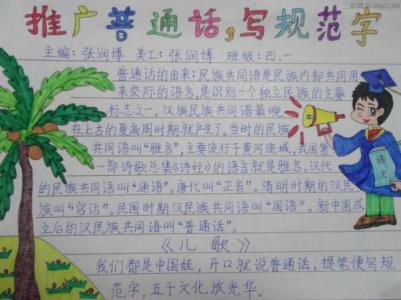 推广普通话,写规范字
主编:张润博 美工:张润博 班级:四.一
普通话的由来:民族共同语是民族内部共同用
来交际的语言,是识别一个独立民族的主要
标志之一,汉族民族共同语最晚
在上古的夏商周时期就产生了,当时的民族
共同语叫“雅言”,主要流行于黄河流域,我国第
一部诗歌总集《诗经》的语言就是雅言。汉代
的民族共同语叫“通语”。唐代叫“正音”。清明时期的汉民
族叫“官话”。民国时期汉民族共同语叫“国语”。新中国成
立后的汉民族共同语叫“普通话”。
《儿歌》
我们都是中国娃,开口就说普通话,提笔便写规
范字,五千文化放光华。
语文